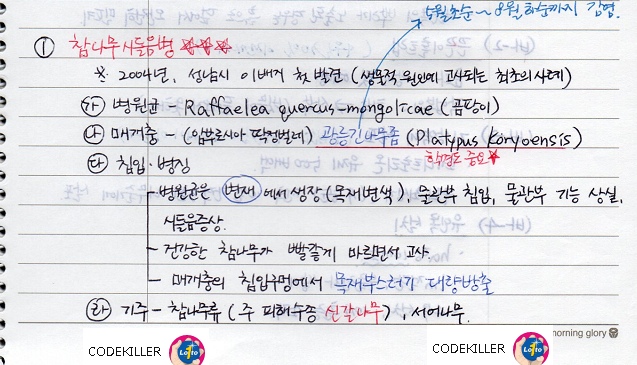 5월초순 ~ 8월 하순까지 감염
① 참나무시들음병 ☆☆☆
※ 2004년, 성남시 이배재 첫발견 (생물적 원인에 고사되는 최초의 사례)
㉮ 병원균 - Raffaelea quercus-mongolicae (곰팡이)
㉯ 매개충 - (암브로시아 딱정벌레) 광릉긴나무좀 (Platypus Koryoensis)
학명도 중요☆
㉰ 침입·병징
- 병원균은 변재에서 생장(목재변색), 물관부 침입, 물관부 기능 상실,
시들음증상.
- 건강한 참나무가 빨갛게 마르면서 고사.
- 매개충의 침입구멍에서 목재부스러기 대량방출
㉱ 기주 - 참나무류 (주 피해수종 신갈나무), 서어나무.
morning glory
CODEKILLER Lotto
CODEKILLER Lotto